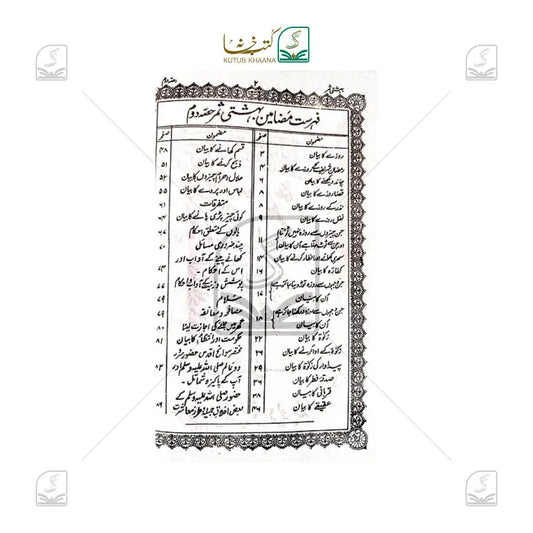 کتب خانہ
KUTUB KHAANA
بہشتی ثمر
۲
حصہ دوم
فہرست مضامین بہشتی ثمر حصہ دوم
مضمون صفحہ
روزے کا بیان ۳
رمضان شریف کے روزے کا بیان ۴
چاند دیکھنے کا بیان ۶
قضا روزے کا بیان
نذر کے روزے کا بیان ۸
نفل روزے کا بیان ۹
جن چیزوں سے روزہ نہیں ٹوٹتا
اور جن سے ٹوٹ جاتا ہے اُن کا بیان ۱۱
سحری کھانے اور افطار کرنے کا بیان ۱۴
کفارہ کا بیان ۱۶
جن وجہوں سے روزہ توڑ دینا جائز ہے
اُن کا بیان ۱۷
جن وجہوں سے روزہ نہ رکھنا جائز ہے
اُن کا بیان ۱۸
زکوٰۃ کا بیان ۲۲
زکوٰۃ کے ادا کرنے کا بیان ۲۶
پیداوار کی زکوٰۃ کا بیان ۲۹
صدقہ فطر کا بیان
قربانی کا بیان ۳۸
عقیقے کا بیان ۴۶
مضمون صفحہ
قسم کھانے کا بیان ۴۸
ذبح کرنے کا بیان ۵۱
حلال و حرام چیزوں کا بیان ۵۲
لباس اور پردے کا بیان ۵۵
متفرقات ۶۱
کوئی چیز پڑی پانے کا بیان ۶۴
بالوں کے متعلق احکام
چند ضروری مسائل ۷۰
کھانے پینے کے آداب اور
اس کے احکام ۷۳
پوشش و زینت کے آداب و احکام ۷۷
سلام ۷۹
مصافحہ و معانقہ ۷۹
گھر میں جانے کی اجازت لینا ۸۰
حکومت اور انتظام کا بیان ۸۱
مختصر سوانح اقدس حضور سرور
دو عالم صلی اللہ علیہ وسلم اور
آپ کے پاکیزہ شمائل
حضور صلی اللہ علیہ وسلم کے
بعض اخلاق جمیلہ و طرز معاشرت ۸۶